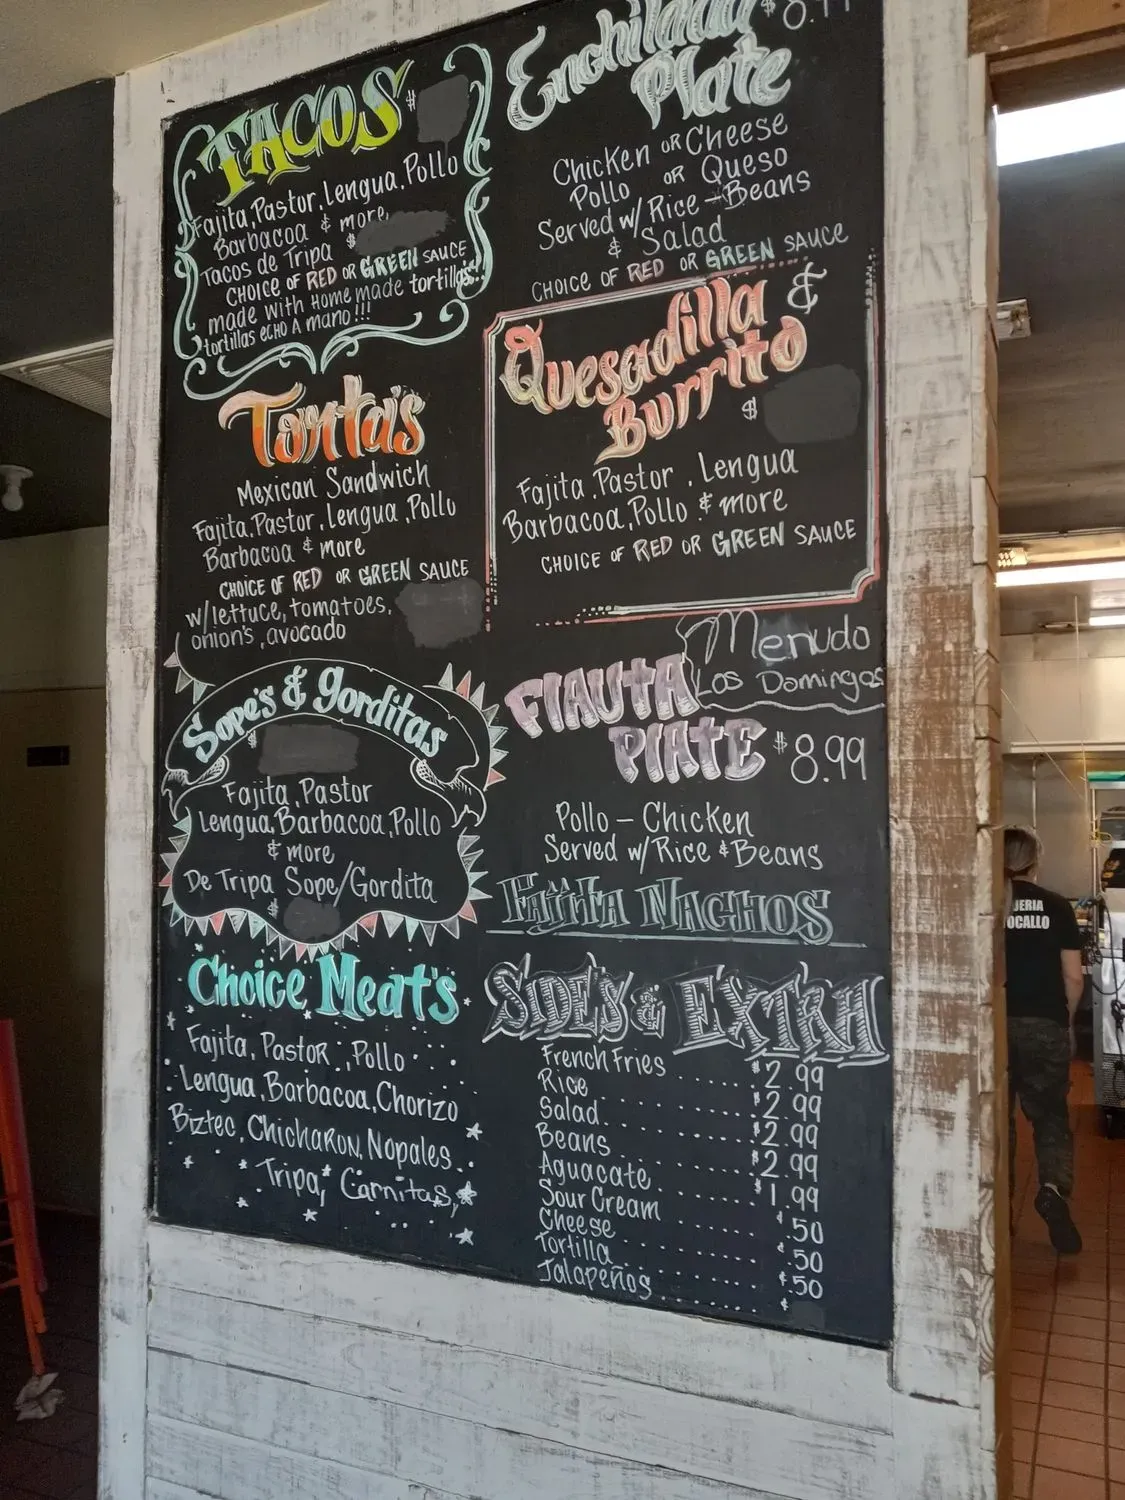 TACOS $
Fajita, Pastor, Lengua, Pollo
Barbacoa & more,
Tacos de Tripa $
CHOICE OF RED OR GREEN SAUCE
made with Home made tortillas!!
tortillas ECHO A mano!!!
Torta's
Mexican Sandwich
Fajita, Pastor, Lengua, Pollo
Barbacoa & more
CHOICE OF RED OR GREEN SAUCE
w/lettuce, tomatoes,
onion's, avocado
Sope's & gorditas
$
Fajita, Pastor
Lengua, Barbacoa, Pollo
& more
De Tripa Sope/Gordita
$
Choice Meat's
Fajita, Pastor, Pollo
Lengua, Barbacoa, Chorizo
Biztec, Chicharon, Nopales
Tripa, Carnitas,
Enchilada $8.
Plate
Chicken OR Cheese
Pollo OR Queso
Served w/Rice - Beans
& Salad
CHOICE OF RED OR GREEN SAUCE
Quesadilla &
Burrito
$
Fajita, Pastor, Lengua
Barbacoa, Pollo & more
CHOICE OF RED OR GREEN SAUCE
Menudo
Los Domingos
FlAUTA
PlATE $8.99
Pollo - Chicken
Served w/Rice & Beans
Fajita Nachos
SIDE'S & EXTRA
French Fries ...... $2.99
Rice ...... $2.99
Salad ...... $2.99
Beans ...... $2.99
Aguacate ...... $1.99
Sour Cream ...... $.50
Cheese ...... $.50
Tortilla ...... $.50
Jalapeños ...... $
JERIA
OCALLO